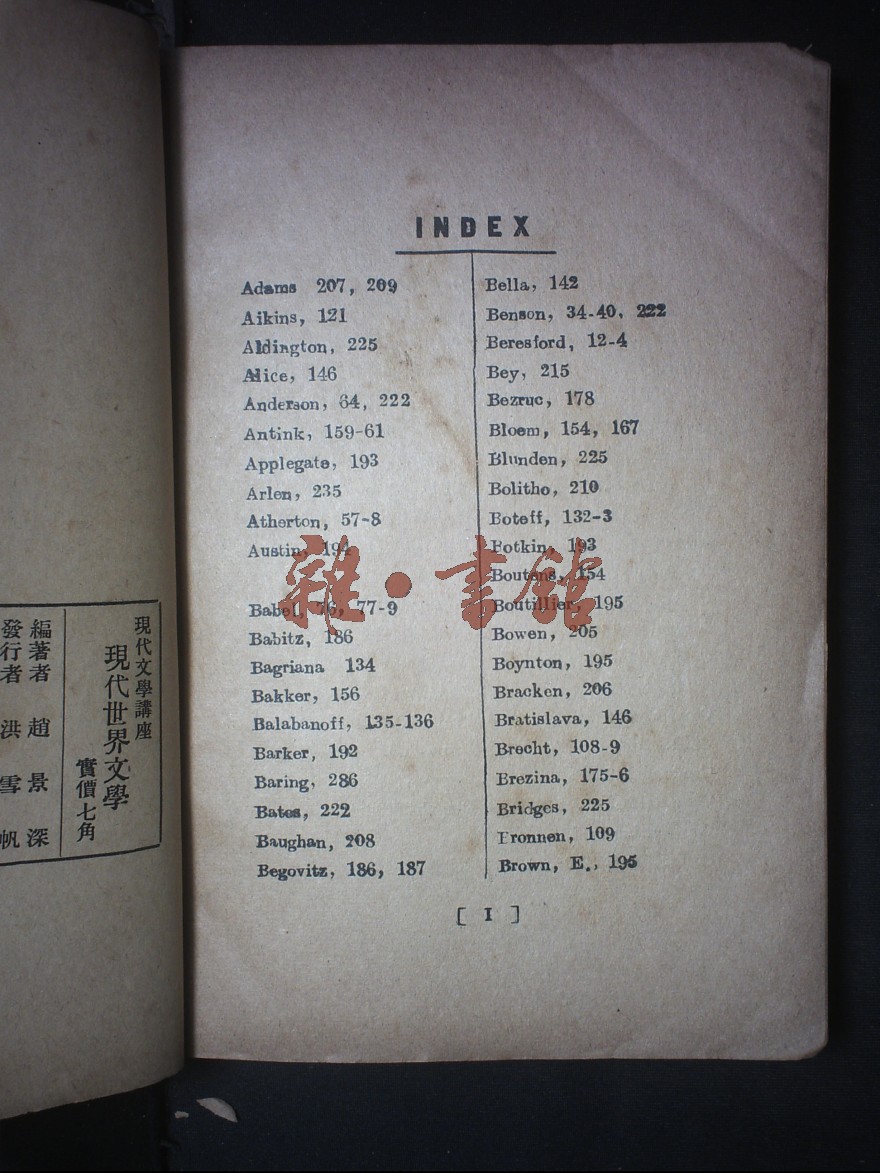 現代文學講座
現代世界文學
實價七角
編著者 趙景深
發行者 洪雪帆
INDEX
Adams 207, 209
Aikins, 121
Aldington, 225
Alice, 146
Anderson, 64, 222
Antink, 159-61
Applegate, 193
Arlen, 235
Atherton, 57-8
Austin, 194
Babel, 76, 77-9
Babitz, 186
Bagriana 134
Bakker, 156
Balabanoff, 135-136
Barker, 192
Baring, 286
Bates, 222
Baughan, 208
Begovitz, 186, 187
Bella, 142
Benson, 34-40, 222
Beresford, 12-4
Bey, 215
Bezruc, 178
Bloem, 154, 167
Blunden, 225
Bolitho, 210
Boteff, 132-3
Botkin, 193
Boutens, 154
Boutillier, 195
Bowen, 205
Boynton, 195
Bracken, 206
Bratislava, 146
Brecht, 108-9
Brezina, 175-6
Bridges, 225
Bronnen, 109
Brown, E., 195
[ I ]
雜·書館